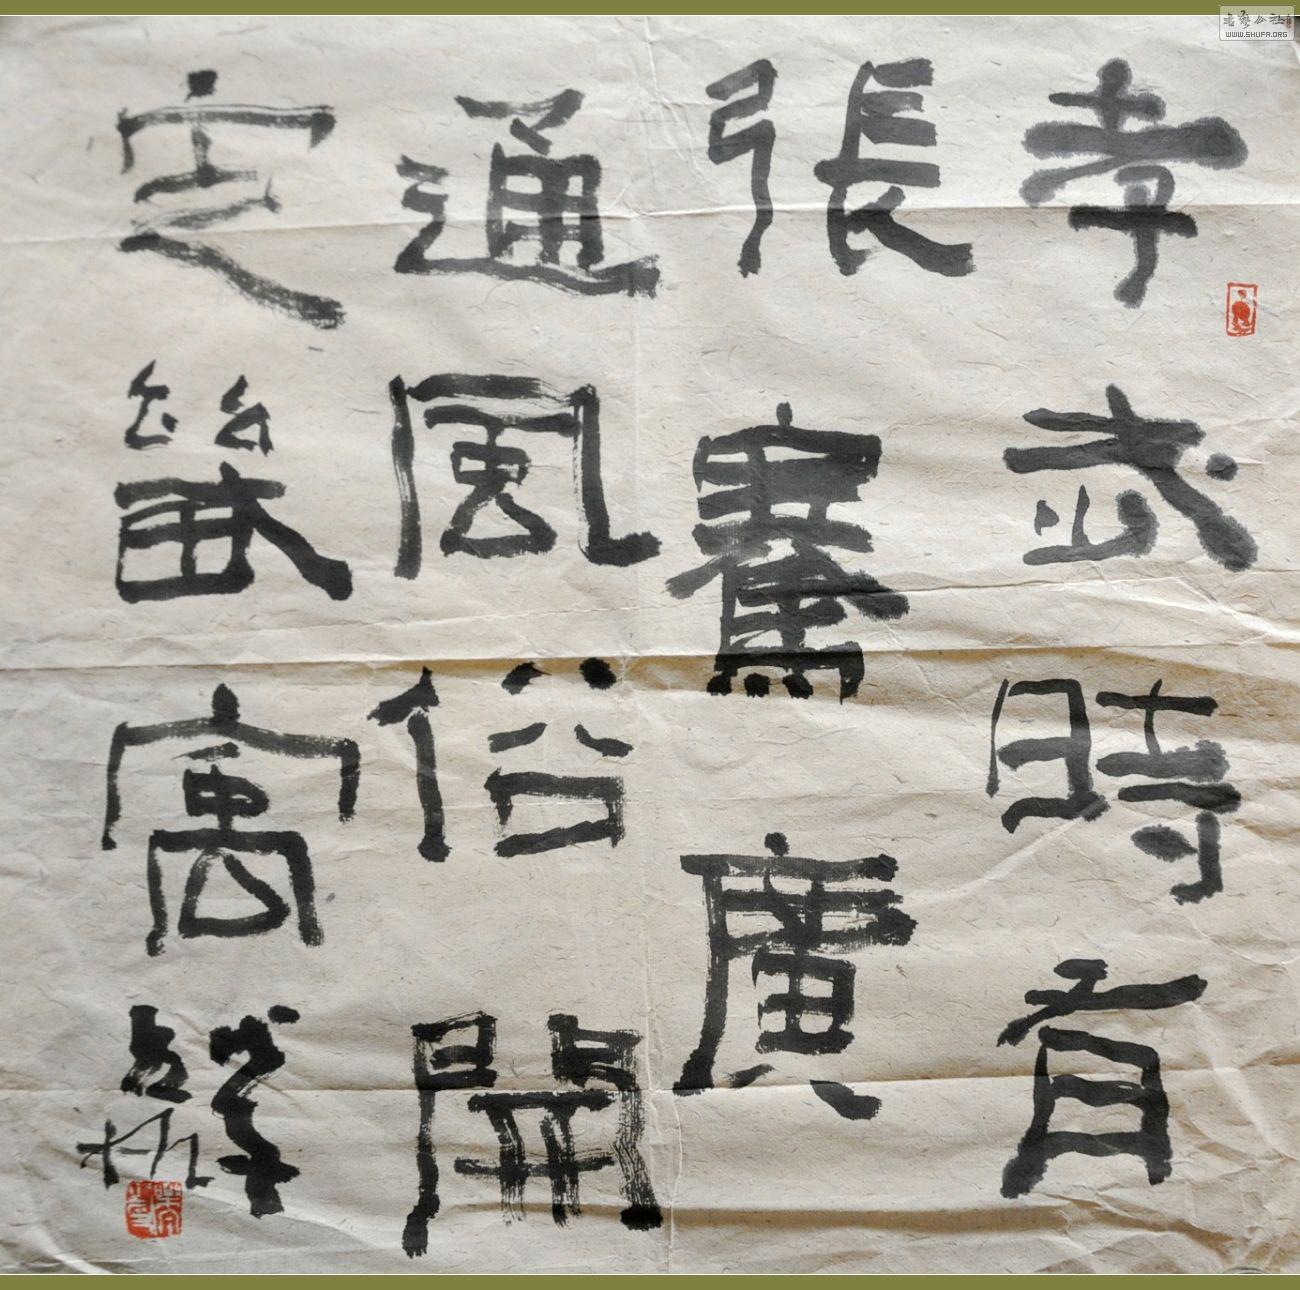 孝武時有
張騫廣
通風俗開
定畿寓
书艺公社
WWW.SHUFA.ORG